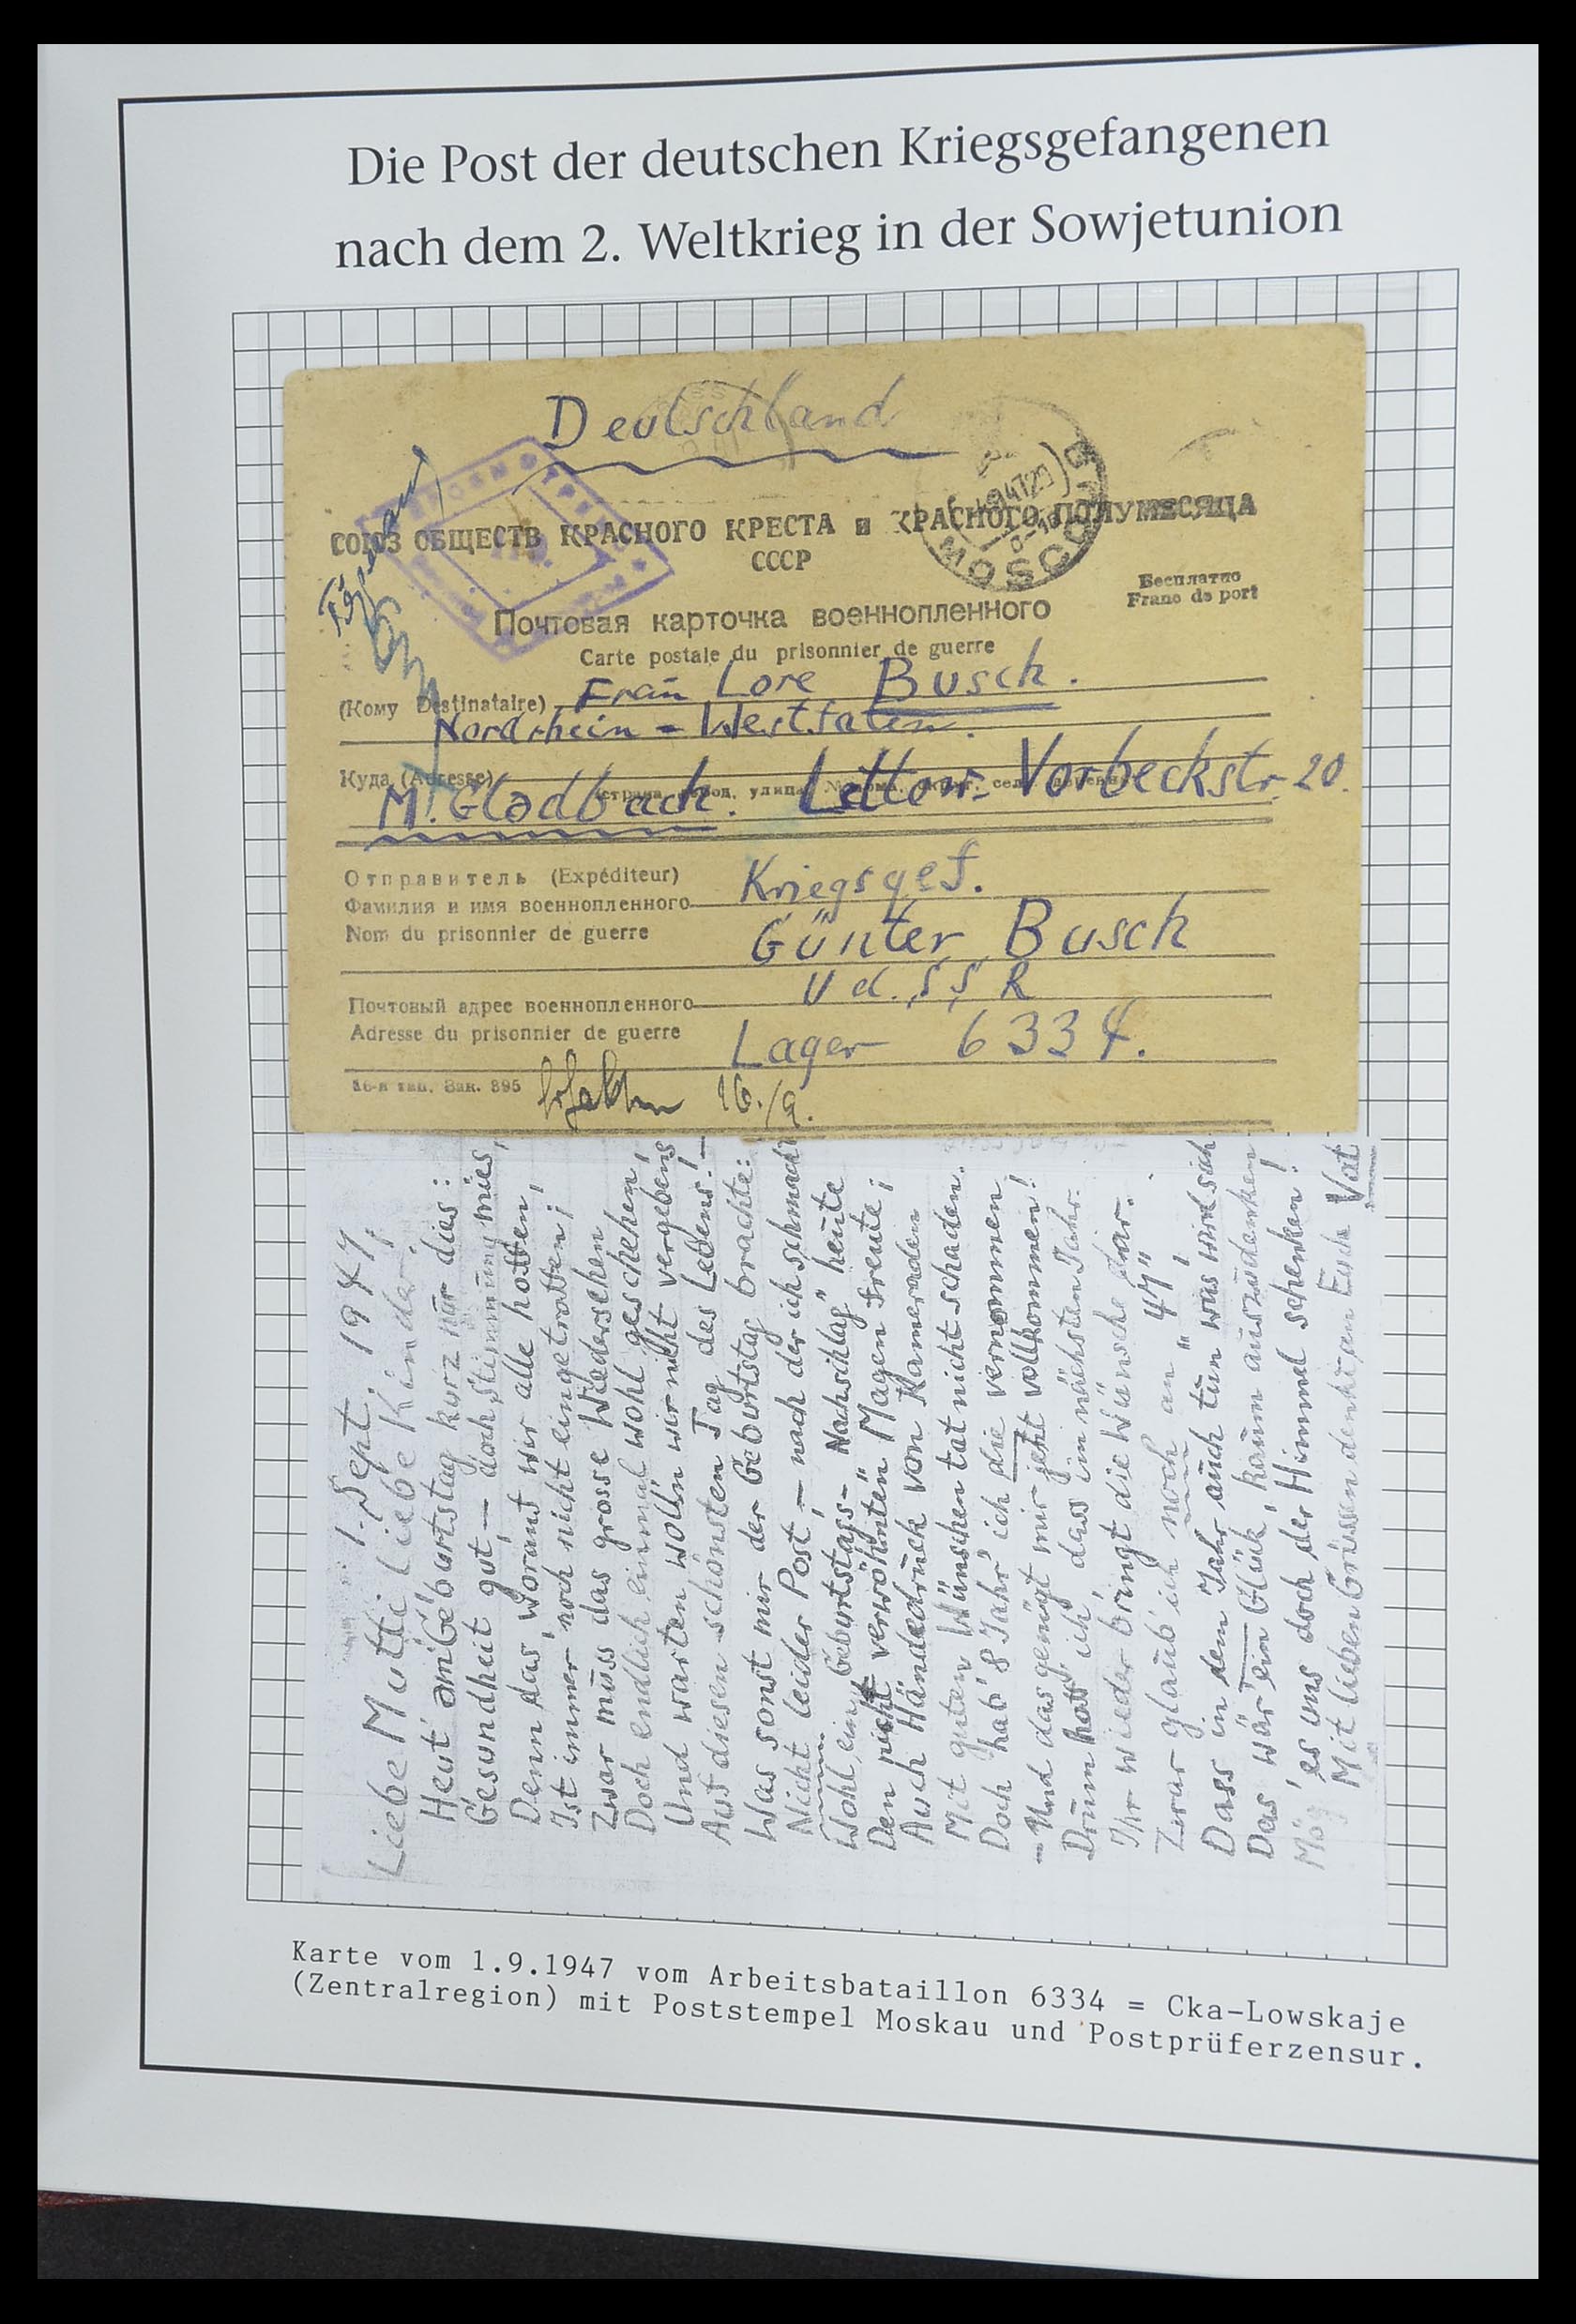 Die Post der deutschen Kriegsgefangenen
nach dem 2. Weltkrieg in der Sowjetunion
Deutschland
СОЮЗ ОБЩЕСТВ КРАСНОГО КРЕСТА и КРАСНОГО ПОЛУМЕСЯЦА
СССР
MOSCOU
Бесплатно
Franc de port
Почтовая карточка военнопленного
Carte postale du prisonnier de guerre
(Кому Destinataire) Fraŭ Lore Busch.
Nordrhein - Westfalen.
Куда (Adresse)
M. Gladbach. Lettow-Vorbeckstr. 20.
Отправитель (Expéditeur) Kriegsgef.
Фамилия и имя военнопленного
Nom du prisonnier de guerre Günter Busch
U d. S S R
Почтовый адрес военнопленного
Adresse du prisonnier de guerre Lager 6334.
16-я тип. Зак. 895
16./9.
1. Sept. 1947.
Liebe Mutti, liebe Kinder!
Heut' am Geburtstag kurz nur dies:
Gesundheit gut, – doch Stimmung mies,
Denn das, worauf wir alle hoffen,
Ist immer noch nicht eingetroffen;
Zwar muss das grosse Wiedersehen
Doch endlich einmal wohl geschehen,
Und warten woll'n wir nicht vergebens
Auf diesen schönsten Tag des Lebens! –
Was sonst mir der Geburtstag brachte:
Nicht leider Post, – nach der ich schmachte
Wohl ein Geburtstags- Nachschlag" heute
Den nicht verwöhnten" Magen freute;
Auch Händedrück von Kameraden
Mit guten Wünschen tat nicht schaden.
Doch hab' 8 Jahr' ich die vernommen
– Und das genügt mir jetzt vollkommen!
Drum hoff' ich, dass im nächsten Jahr
Ihr wieder bringt die Wünsche dar.
Zwar glaub' ich noch an „47",
Dass in dem Jahr auch tun was wird sich
Das wär' ein Glük, kaum auszudenken
Mög' es uns doch der Himmel schenken!
Mit lieben Grüssen denkt an Euch Vati
Karte vom 1.9.1947 vom Arbeitsbataillon 6334 = Cka-Lowskaje
(Zentralregion) mit Poststempel Moskau und Postprüferzensur.